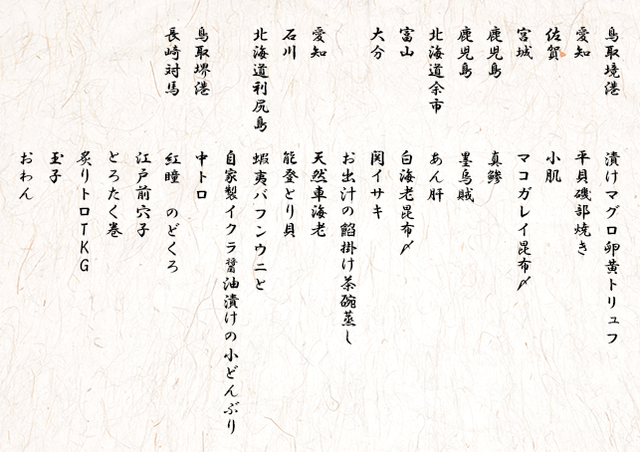 鳥取境港 漬けマグロ卵黄トリュフ
愛知 平貝磯部焼き
佐賀 小肌
宮城 マコガレイ昆布〆
鹿児島 真鯵
鹿児島 墨烏賊
北海道余市 あん肝
富山 白海老昆布〆
大分 関イサキ
お出汁の餡掛け茶碗蒸し
愛知 天然車海老
石川 能登とり貝
北海道利尻島 蝦夷バフンウニと
自家製イクラ醤油漬けの小どんぶり
鳥取堺港 中トロ
長崎対馬 紅瞳 のどくろ
江戸前穴子
とろたく巻
炙りトロTKG
玉子
おわん